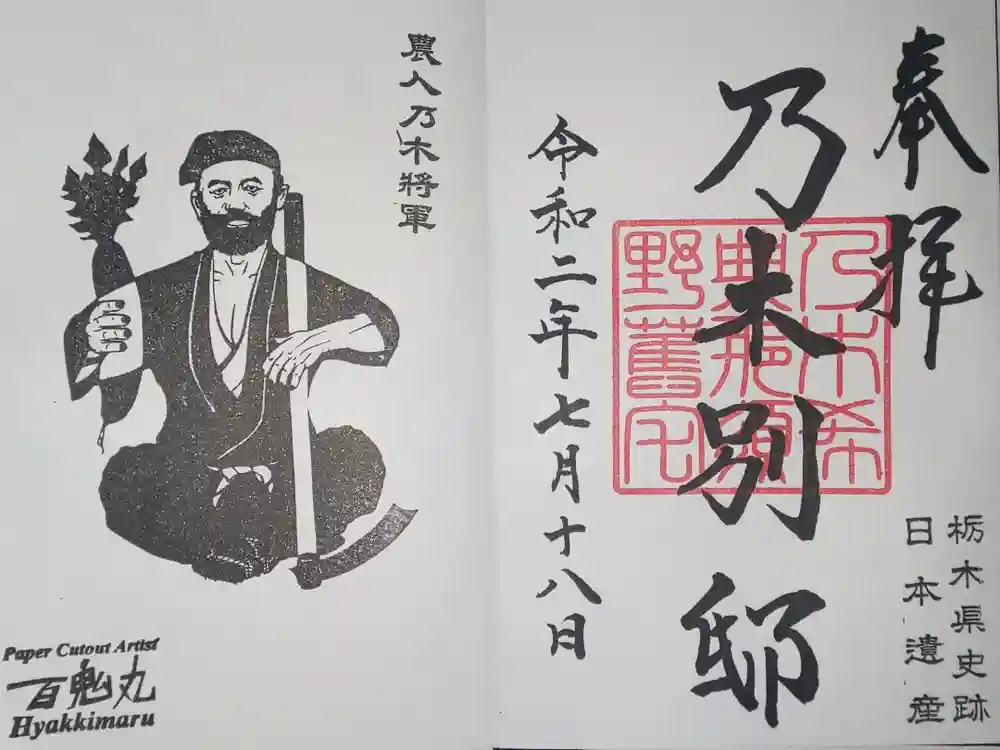 奉拝
乃木別邸
乃木希
典那須
野舊宅
栃木県史跡
日本遺産
令和二年七月十八日
農人乃木将軍
Paper Cutout Artist
百鬼丸
Hyakkimaru